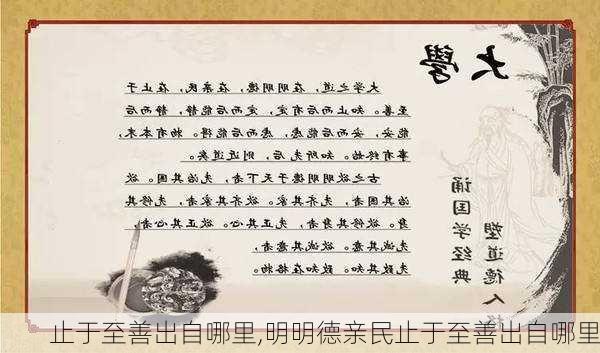 大學
大学之道，在明明德，在亲民，在止于
至善。知止而后有定，定而后能静，静而后
能安，安而后能虑，虑而后能得。物有本末，
事有终始。知所先后，则近道矣。
古之欲明明德于天下者，先治其国。欲
治其国者，先齐其家。欲齐其家者，先修其
身。欲修其身者，先正其心。欲正其心者，
先诚其意。欲诚其意者，
先致其知。致知在格物。
诵国学经典
塑道德人格
止于至善出自哪里,明明德亲民止于至善出自哪里